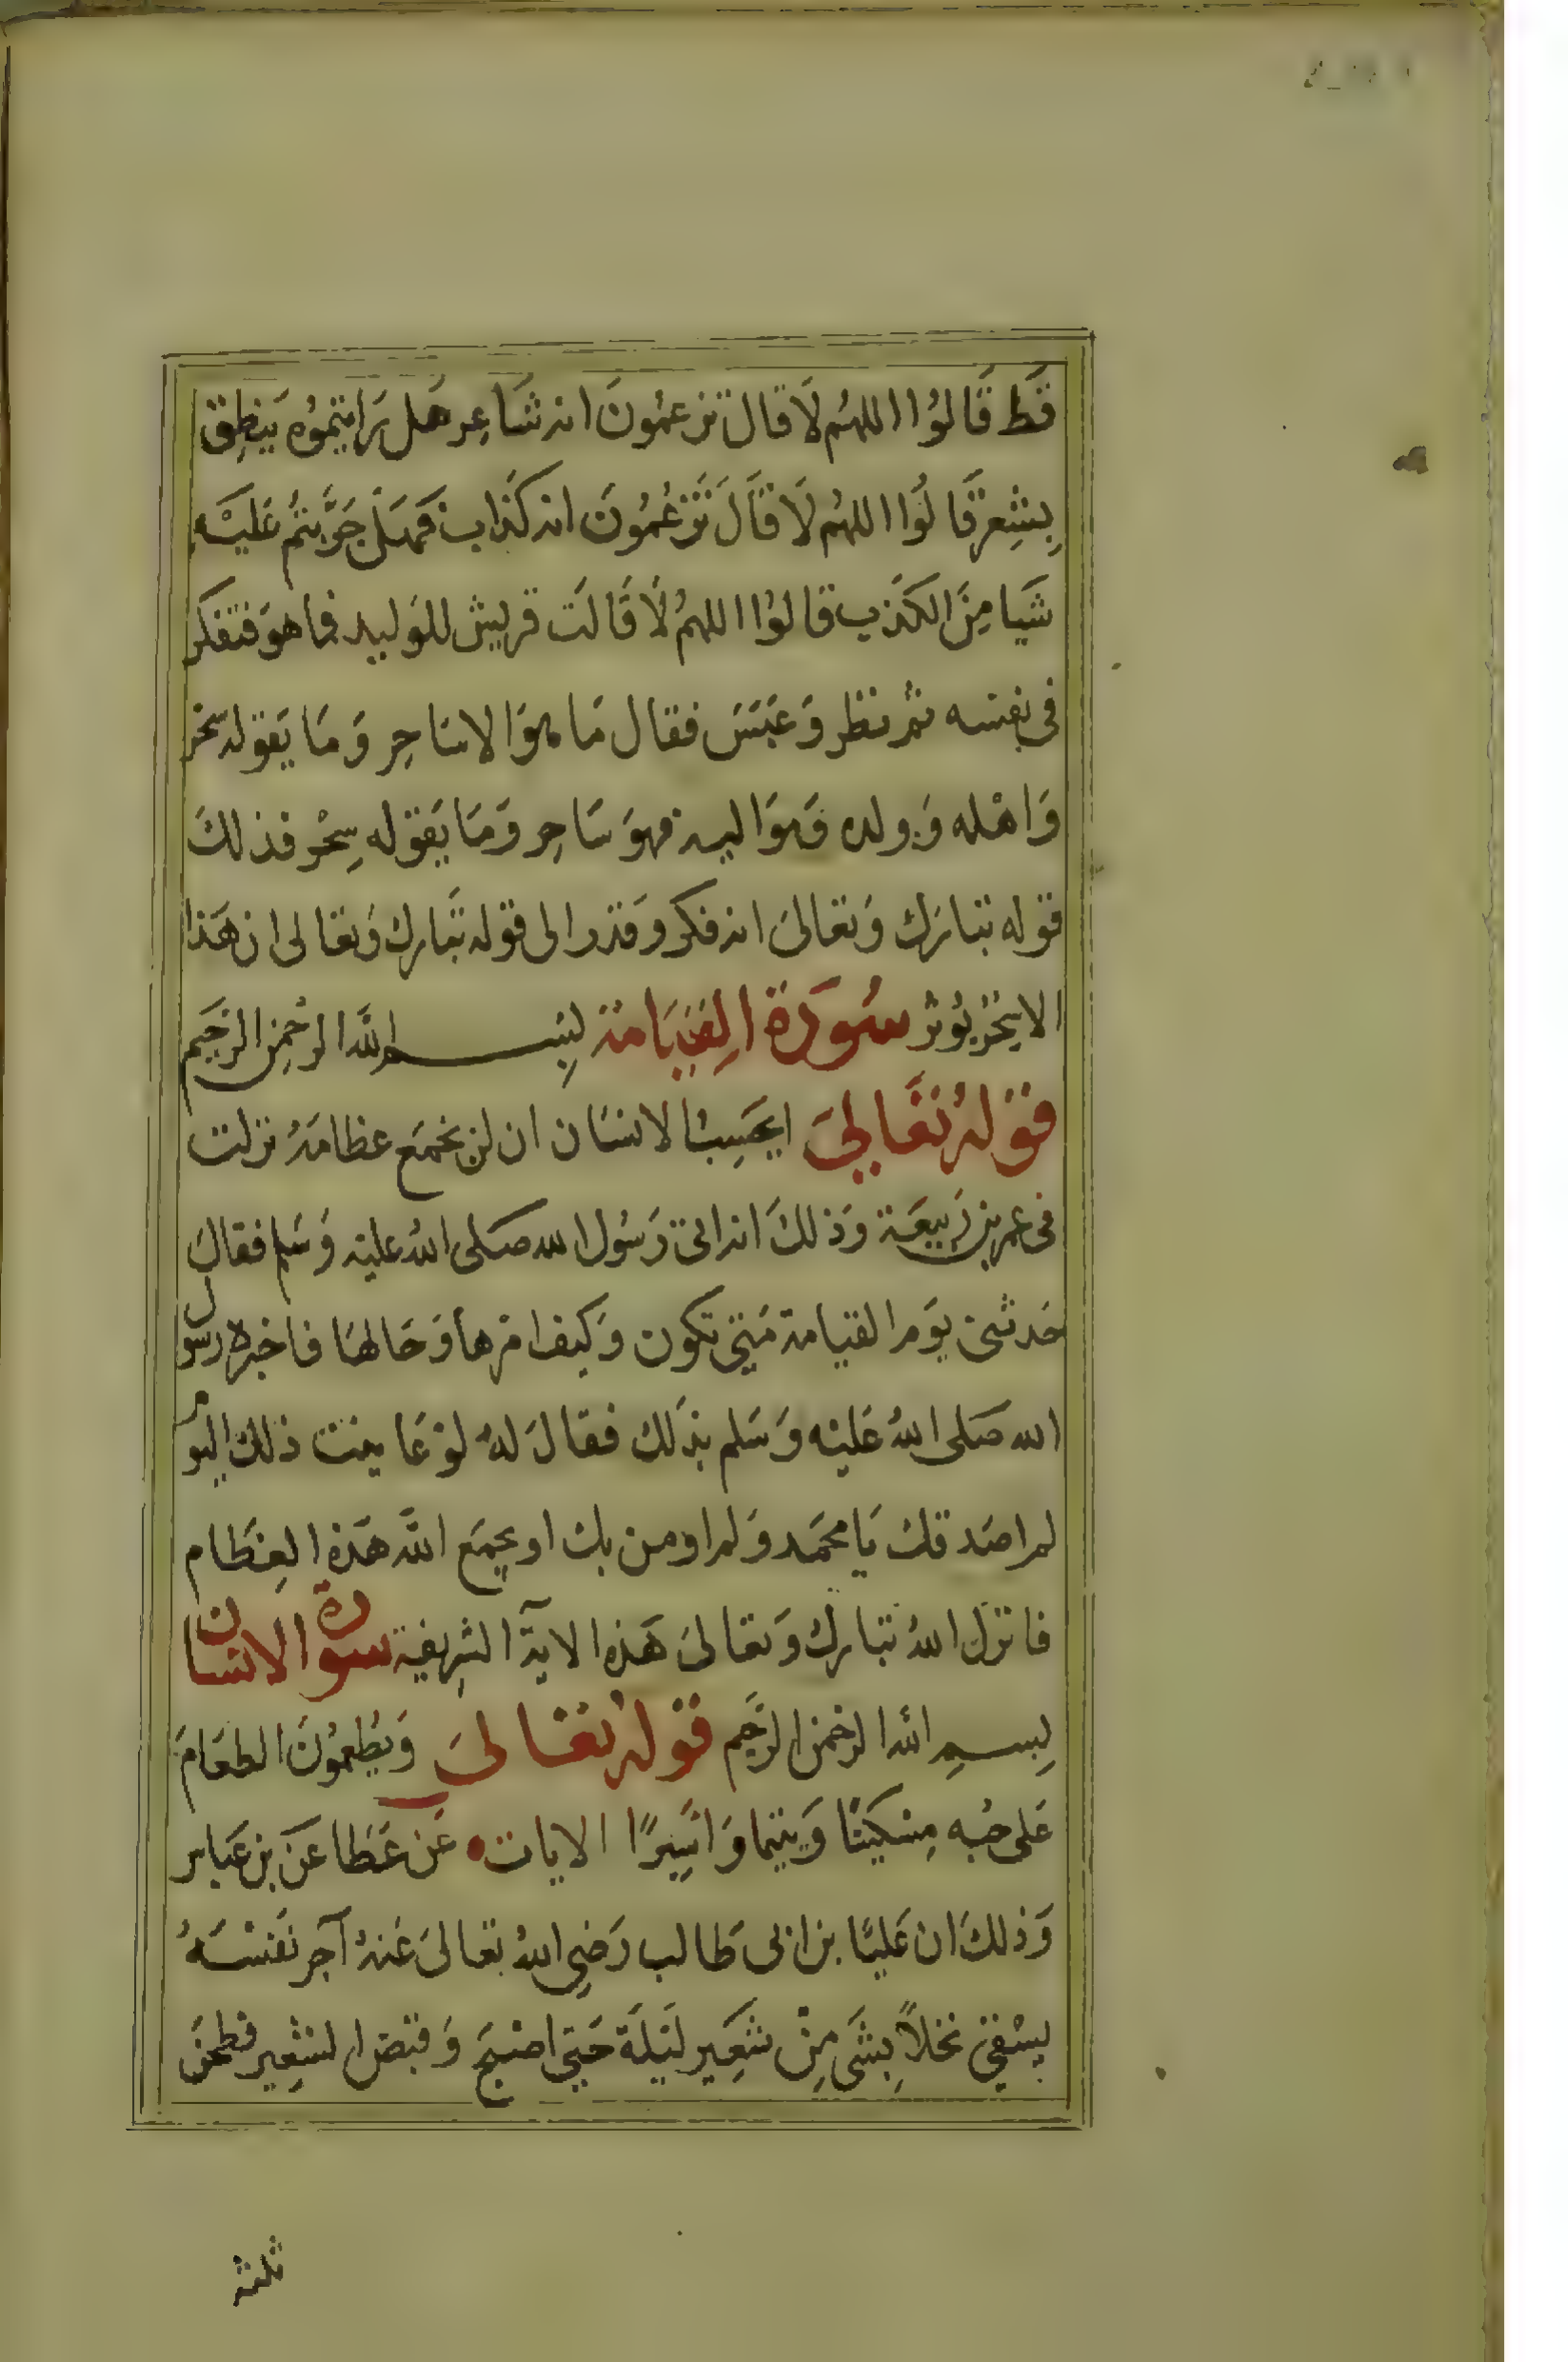 قَط قَالوُا اللهُم لَا قال تزعمُونَ انه شَاعِر هَل رَايتموُه يَنطِق
بِشِعِر قَالُوا اللهُم لَا قَالَ تَزعُمُونَ انه كَذاب فهَل جَرَّبتُم عَليَه
شَيا مِنَ الكَذب قالوُا اللهُم لَا قَالَت قريش للوَليد فما هوَ فتفكر
في نفسه ثم نظر وَعَبَسَ فقال مَا هوَ الا سَاحِر وَمَا يَقوله سحر
وَاهْله وَولده وَموَاليه فهوَ سَاحِر وَمَا يَقوله سِحْر فذلكَ
قوله تبارَك وَتعَالىَ انه فكر وَقدر الى قوله تبَارك وَتعَالى ان هَذا
الا سحْر يوُثر سُورَة القِيَامَة بِسم الله الرحْمن الرحَيم
قوله تعَالىَ ايحَسِبُ الانسَان ان لن نجمَع عظامَهُ نزلت
في عمر بن رَبيعَة وَذلكَ انه اتى رَسُول الله صَلى اللهُ عليْه وَسَلم فقالَ
حَدثنى يوَم القيامة مَتى تكون وَكيف امْرهَا وَحَالهَا فاخبره رسول
الله صَلى اللهُ عَليْه وَسَلم بذَلك فقالَ لهُ لوْ عَاينت ذلك اليوم
لم اصَدقك يَا محمَد وَلم اومن بك او يجمَع الله هَذه العِظَام
فانزل اللهُ تبَارك وَتعَالىَ هَذه الاية الشرِيفة سورة الانسان
بِسمِ الله الرحمن الرحَيم قوله تعَالىَ وَيُطِعمُونَ الطعَامَ
عَلى حُبه مِسْكينًا وَيتيما وَاسَيِرًا الايات عَن عَطا عَن بن عَباس
وَذلكَ ان عَليًا بن ابى طَالب رَضي اللهُ تعَالىَ عَنهُ آجر نفْسَهُ
يسْقي نخلاً بِشىَ مِنْ شعَير ليَلَة حَتى اصْبَح وَقبَضَ الشعِير فطحَن
ثلثه